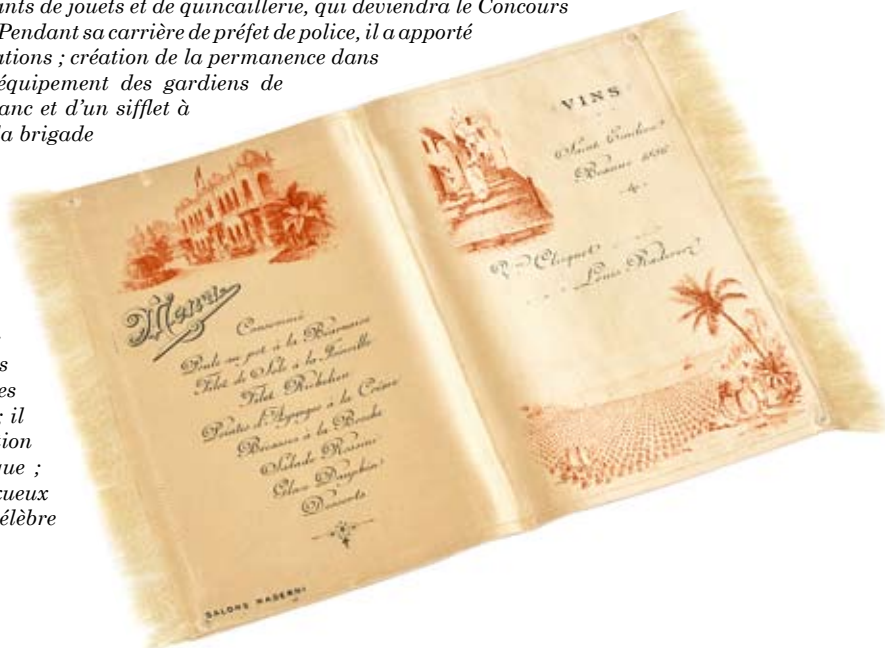 ants de jouets et de quincaillerie, qui deviendra le Concours
Pendant sa carrière de préfet de police, il a apporté
ations ; création de la permanence dans
équipement des gardiens de
anc et d'un sifflet à
la brigade
s
es
il
ion
ue ;
xueux
élèbre
Menu
Consommé
Poule au pot à la Béarnaise
Filet de Sole à la Joinville
Filet Richelieu
Pointes d'Asperges à la Crème
Bécasses à la Broche
Salade Russe
Glace Dauphin
Desserts
SALONS MADERNI
VINS
Saint Emilion
Beaune
Clicquot
Louis Roederer